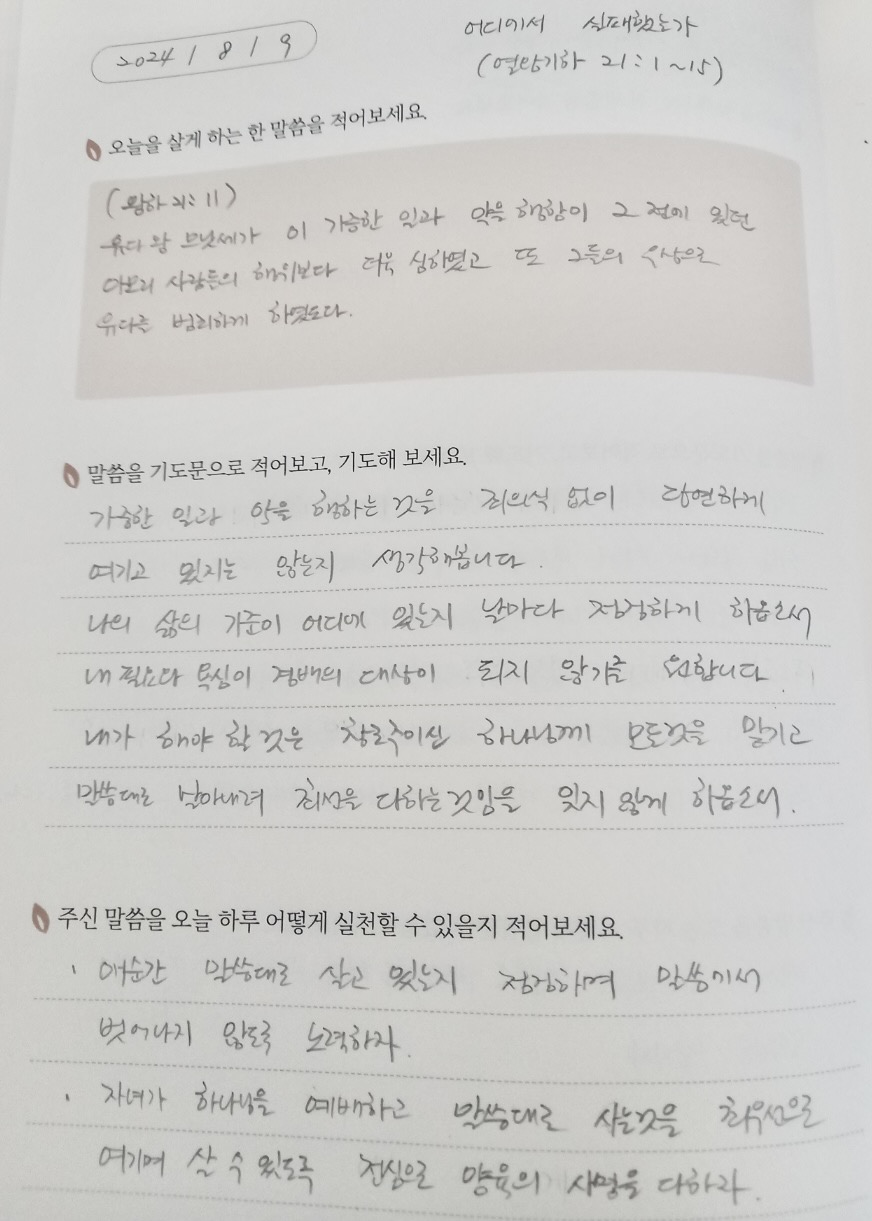 2024 / 8 / 9
어디에서 실패했는가
(열왕기하 21:1~15)
오늘을 살게 하는 한 말씀을 적어보세요.
(왕하 21:11)
유다 왕 므낫세가 이 가증한 일과 악을 행함이 그 전에 있던
아모리 사람들의 행위보다 더욱 심하였고 또 그들의 우상으로
유다를 범죄하게 하였도다.
말씀을 기도문으로 적어보고, 기도해 보세요.
가증한 일과 악을 행하는 것을 죄의식 없이 당연하게
여기고 있지는 않는지 생각해봅니다.
나의 삶의 기준이 어디에 있는지 날마다 점검하게 하옵소서
내 필요와 욕심이 경배의 대상이 되지 않기를 원합니다.
내가 해야 할 것은 창조주이신 하나님께 모든것을 맡기고
말씀대로 살아내려 최선을 다하는것임을 잊지 않게 하옵소서.
주신 말씀을 오늘 하루 어떻게 실천할 수 있을지 적어보세요.
· 매순간 말씀대로 살고 있는지 점검하며 말씀에서
벗어나지 않도록 노력하자.
· 자녀가 하나님을 예배하고 말씀대로 사는것을 최우선으로
여기며 살 수 있도록 진심으로 양육의 사명을 다하라.